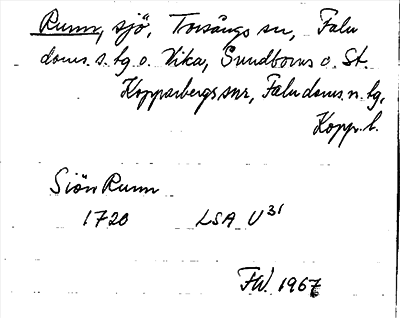 Runn, sjö, Torsångs sn, Falu
doms. s. tg. o. Vika, Sundborns o. St.
Kopparbergs snr, Falu doms. n. tg.
Kopp. l.
Siön Runn
1720 LSA U31
FW 1967